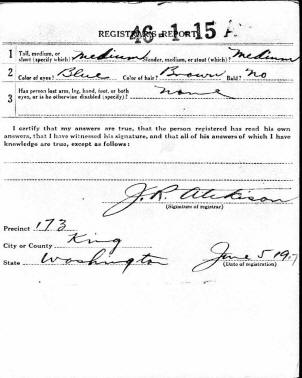 46-1-15 A.
REGISTRAR'S REPORT
1 Tall, medium, or short (specify which)? Medium Slender, medium, or stout (which)? Medium
2 Color of eyes? Blue Color of hair? Brown Bald? No
3 Has person lost arm, leg, hand, foot, or both eyes, or is he otherwise disabled (specify)? none
I certify that my answers are true, that the person registered has read his own
answers, that I have witnessed his signature, and that all of his answers of which I have
knowledge are true, except as follows:
J. R. Atckison
(Signature of registrar)
Precinct 173
City or County King
State Washington June 5 1917
(Date of registration)